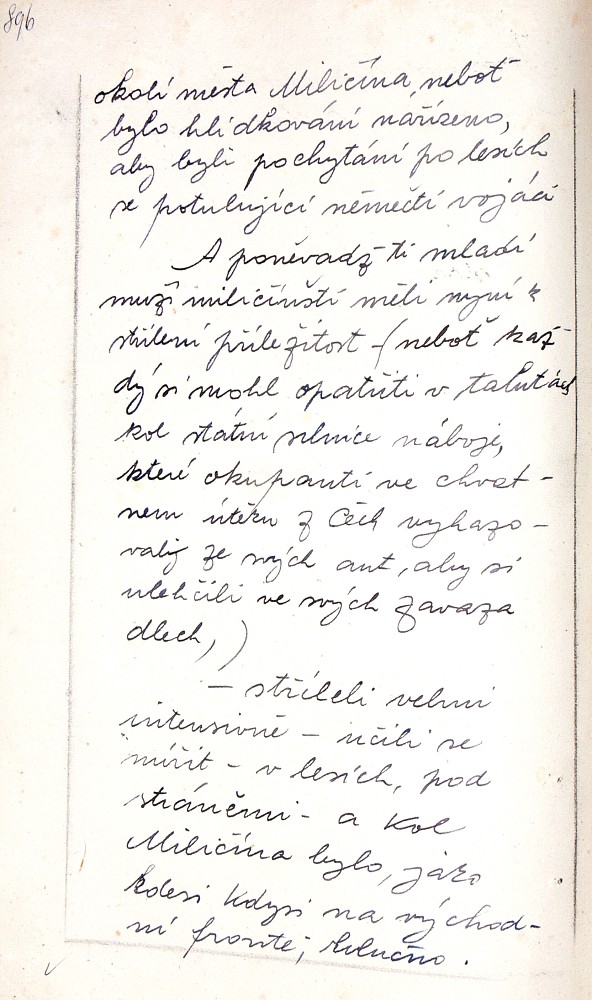 896
okolí města Miličína, neboť
bylo hlídkování nařízeno,
aby byli pochytáni po lesích
se potulující němečtí vojáci
A poněvadž ti mladí
muži miličínští měli nyní k
střílení příležitost – (neboť kaž-
dý si mohl opatřiti v talutách
kol státní silnice náboje,
které okupanti ve chvat-
nem útěku z Čech vyhazo-
vali ze svých aut, aby si
ulehčili ve svých zavaza
dlech,)
– stříleli velmi
intensivně – učili se
mířit – v lesích, pod
stráněmi – a kol
Miličína bylo, jako
kdesi kdysi na východ-
ní frontě, hlučno.